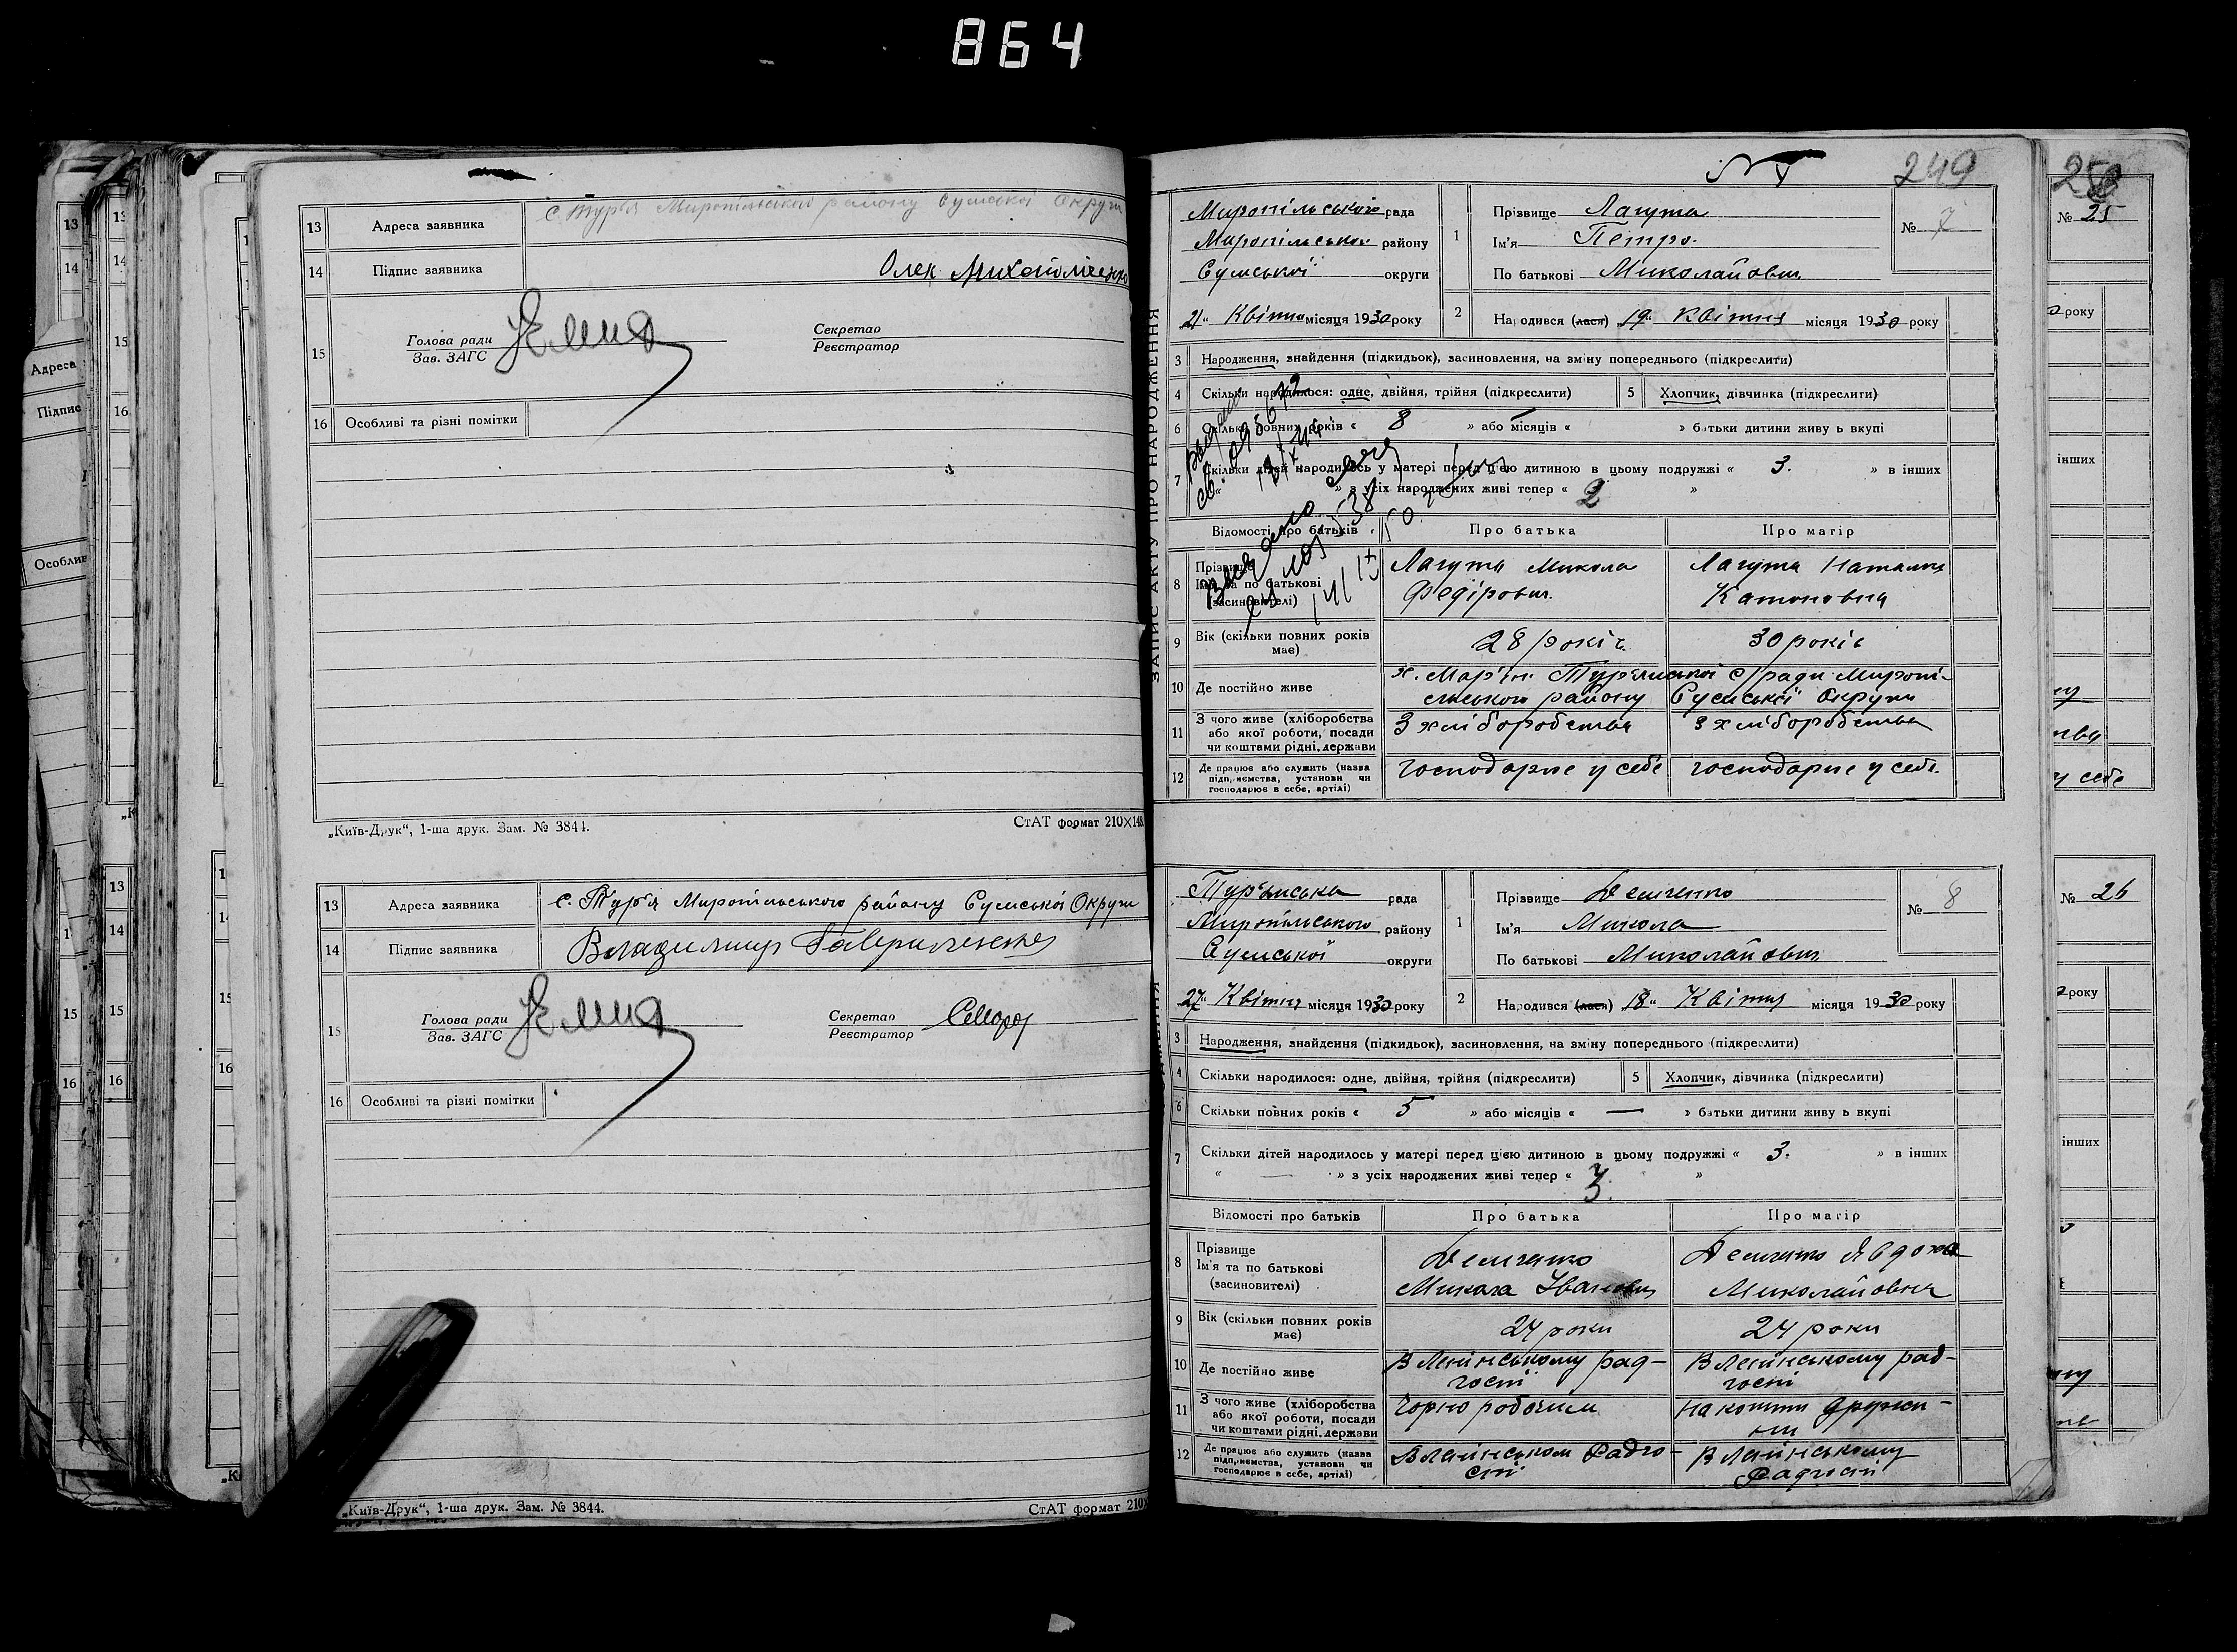 864
13 Адреса заявника с Тур'я Миропільського району Сумської Округи
14 Підпис заявника Олек. Михайліченко
15 Голова ради
Зав. ЗАГС
Секретар
Реєстратор
16 Особливі та різні помітки
„Київ-Друк“, 1-ша друк. Зам. № 3844.
СтАТ формат 210×148
13 Адреса заявника с. Тур'я Миропільського району Сумської Округи
14 Підпис заявника Владимир Гавриленко
15 Голова ради
Зав. ЗАГС
Секретар
Реєстратор
16 Особливі та різні помітки
„Київ-Друк“, 1-ша друк. Зам. № 3844.
СтАТ формат 210
249
ЗАПИС АКТУ ПРО НАРОДЖЕННЯ
Миропільського рада
Миропільської району
Сумської округи
21 „ Квітня місяця 1930 року
1 Прізвище Лагута
Ім'я Петро.
По батькові Миколайович
№ 7
2 Народився (лася) 19 „ Квітня місяця 1930 року
3 Народження, знайдення (підкидьок), засиновлення, на зміну попереднього (підкреслити)
4 Скільки народилося: одне, двійня, трійня (підкреслити)
5 Хлопчик, дівчинка (підкреслити)
6 Скільки повних років « 8 » або місяців « » батьки дитини живуть вкупі
7 Скільки дітей народилось у матері перед цією дитиною в цьому подружжі « 3. » в інших
« » з усіх народжених живі тепер « 2 »
Відомості про батьків Про батька Про матір
8 Прізвище
Ім'я та по батькові
(засиновителі)
Лагута Микола
Федірович.
Лагута Наталія
9 Вік (скільки повних років
має)
28 років
30 років
10 Де постійно живе
с/ради Миропі-
льського району Сумської Округи
11 З чого живе (хліборобства
або якої роботи, посади
чи коштами рідні, держави
З хліборобства
З хліборобства
12 Де працює або служить (назва
підприємства, установи чи
господарює в себе, артілі)
Господарює у себе
господарює у себе.
Тур'янська рада
Миропільського району
Сумської округи
27 „ Квітня місяця 1930 року
1 Прізвище Демченко
Ім'я Микола
По батькові Миколайович
№ 8
2 Народився (лася) 18 „ Квітня місяця 1930 року
3 Народження, знайдення (підкидьок), засиновлення, на зміну попереднього (підкреслити)
4 Скільки народилося: одне, двійня, трійня (підкреслити)
5 Хлопчик, дівчинка (підкреслити)
6 Скільки повних років « 5 » або місяців « — » батьки дитини живуть вкупі
7 Скільки дітей народилось у матері перед цією дитиною в цьому подружжі « 3. » в інших
« — » з усіх народжених живі тепер « 3. »
Відомості про батьків Про батька Про матір
8 Прізвище
Ім'я та по батькові
(засиновителі)
Демченко
Микола Іванович
Демченко Явдоха
Миколайовна
9 Вік (скільки повних років
має)
24 роки
24 роки
10 Де постійно живе
В Ленінському рад-
госпі
В Ленінському рад-
госпі
11 З чого живе (хліборобства
або якої роботи, посади
чи коштами рідні, держави
Чорно робочим
На кошти дружи-
ни
12 Де працює або служить (назва
підприємства, установи чи
господарює в себе, артілі)
В Ленінськом Радго-
спі
В Ленінському
Радгоспі
№ 25
року
інших
у себе
№ 26
року
інших